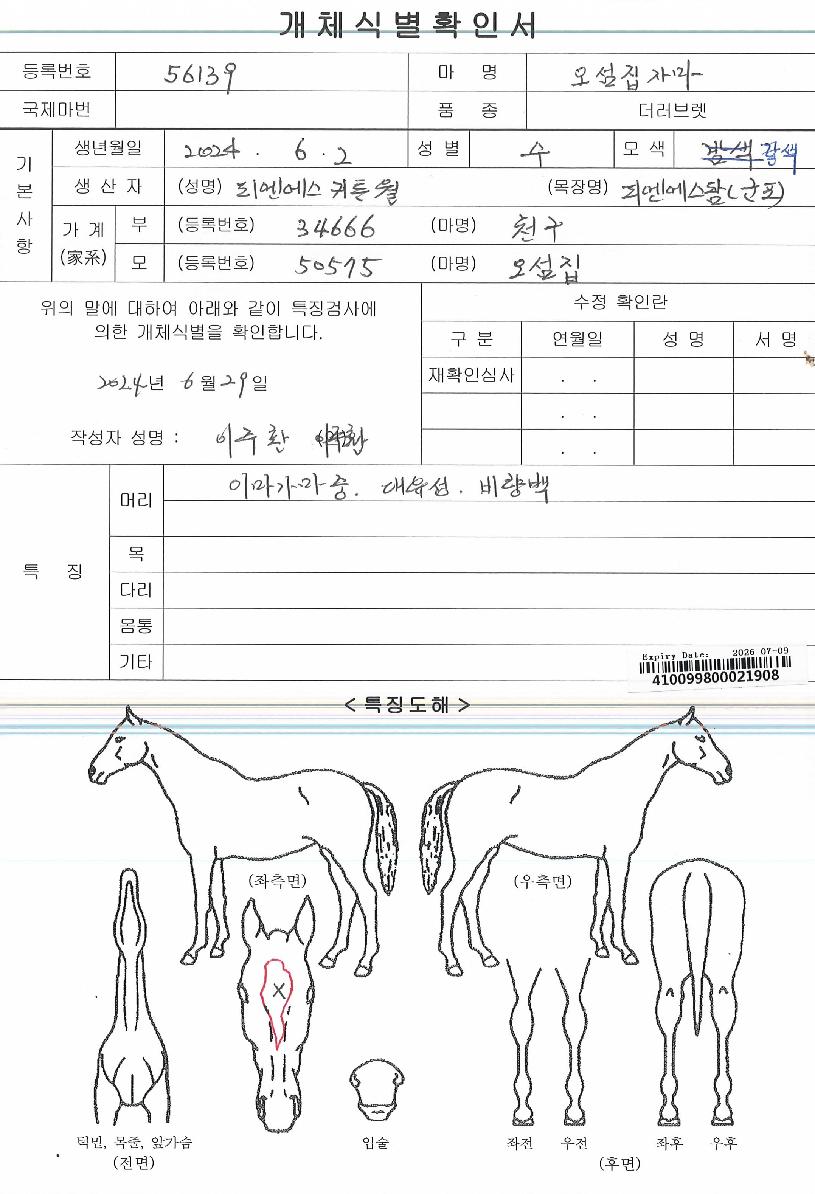 개체식별확인서
등록번호 56139 마명 오섬집자마
국제마번 품종 더러브렛
기본사항
생년월일 2024. 6. 2 성별 수 모색 밤색 갈색
생산자 (성명) 피엔에스커튼월 (목장명) 피엔에스팜(군포)
가계(家系) 부 (등록번호) 34666 (마명) 천구
모 (등록번호) 50575 (마명) 오섬집
위의 말에 대하여 아래와 같이 특징검사에
의한 개체식별을 확인합니다.
2024년 6월 29일
작성자 성명 : 이주환
수정 확인란
구분 연월일 성명 서명
재확인심사 . .
. .
. .
특징
머리 이마가마중. 대유성. 비량백
목
다리
몸통
기타
Expiry Date: 2026-07-09
410099800021908
< 특징도해 >
(좌측면) (우측면)
X
턱밑, 목줄, 앞가슴 입술 좌전 우전 좌후 우후
(전면) (후면)